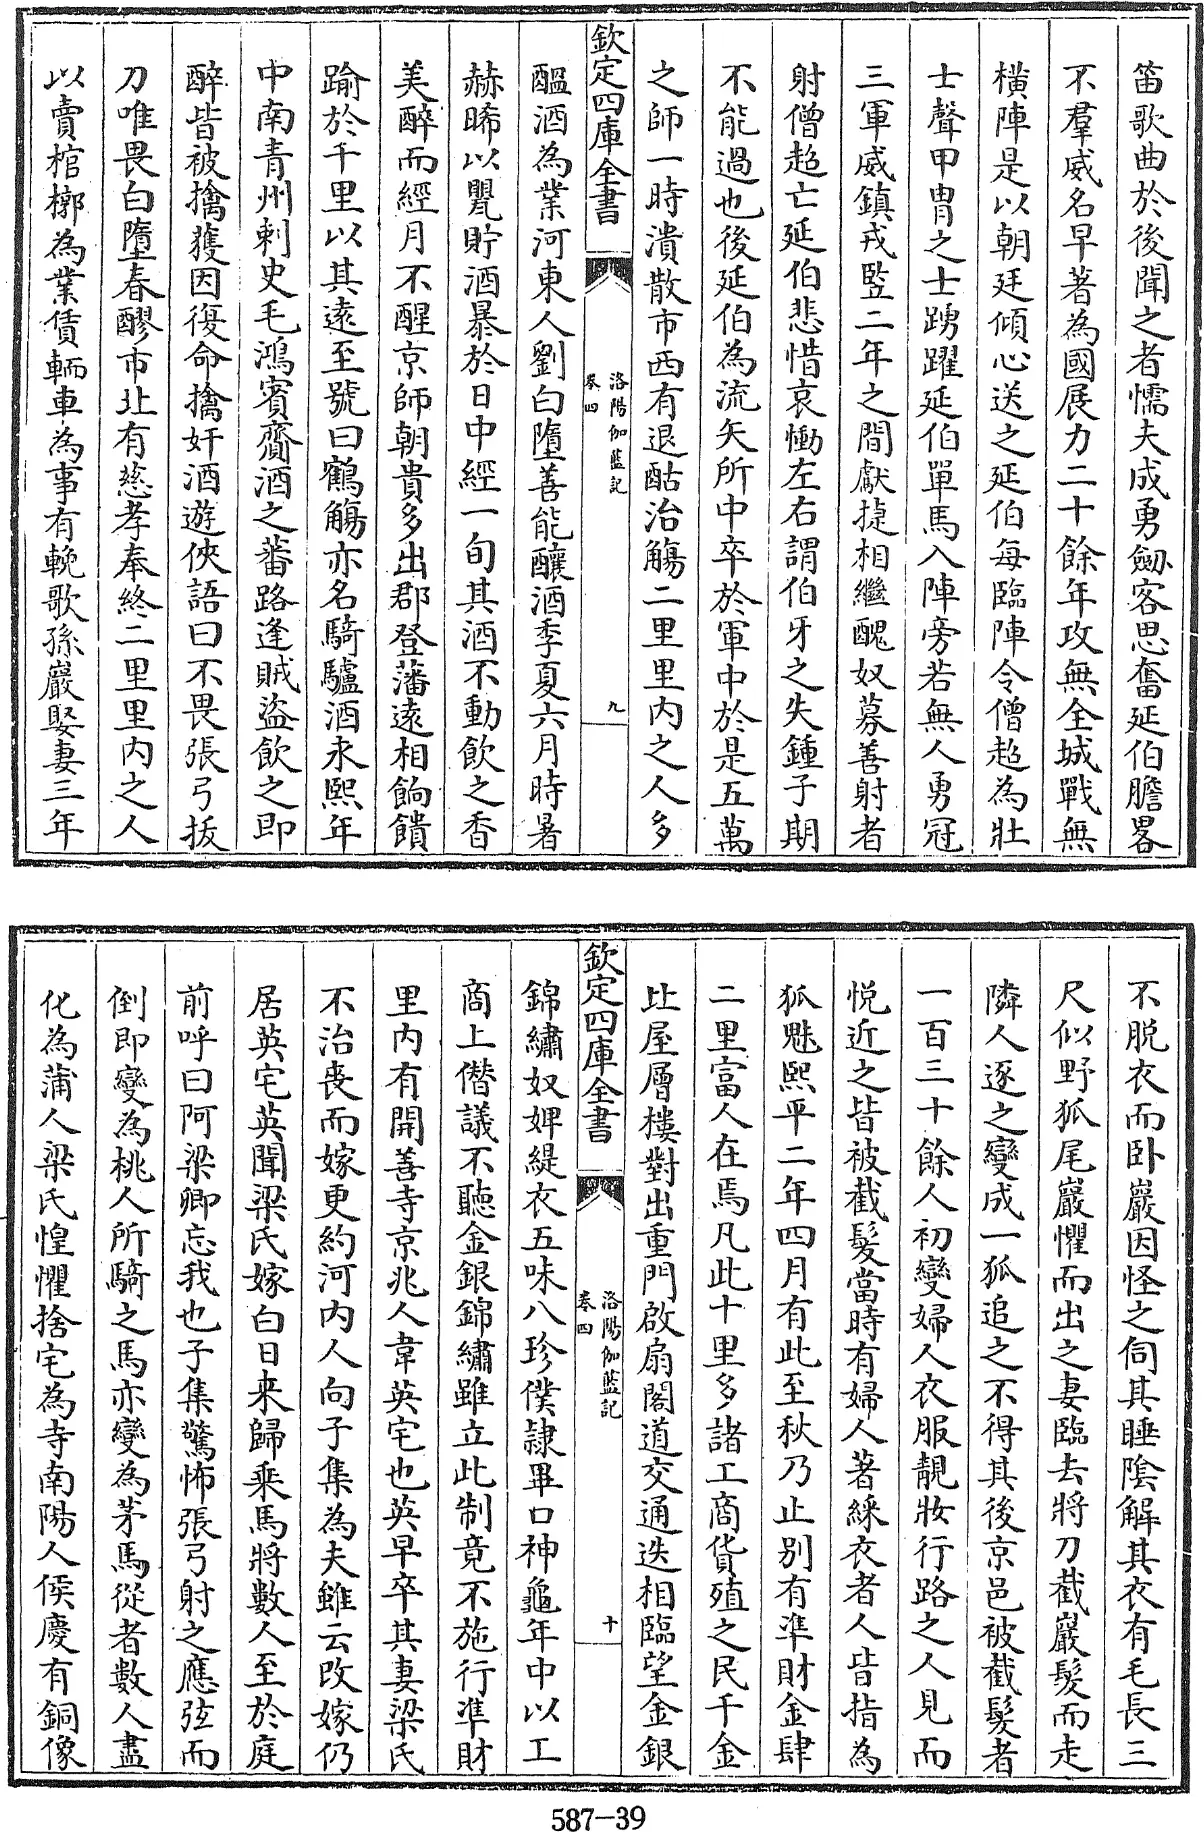 笛歌曲於後聞之者懦夫成勇劒客思奮延伯膽畧
不羣威名早著為國展力二十餘年攻無全城戰無
橫陣是以朝廷傾心送之延伯每臨陣令僧超為壯
士聲甲胄之士踴躍延伯單馬入陣旁若無人勇冠
三軍威鎮戎豎二年之間獻捷相繼醜奴募善射者
射僧超亡延伯悲惜哀慟左右謂伯牙之失鍾子期
不能過也後延伯為流矢所中卒於軍中於是五萬
之師一時潰散市西有退酤治觴二里里內之人多
欽定四庫全書
洛陽伽藍記
卷四
九
醞酒為業河東人劉白墮善能釀酒季夏六月時暑
赫晞以甖貯酒暴於日中經一旬其酒不動飲之香
美醉而經月不醒京師朝貴多出郡登藩遠相餉饋
踰於千里以其遠至號曰鶴觴亦名騎驢酒永熙年
中南青州刺史毛鴻賓齎酒之蕃路逢賊盜飲之即
醉皆被擒獲因復命擒奸酒遊俠語曰不畏張弓拔
刀唯畏白墮春醪市北有慈孝奉終二里里內之人
以賣棺槨為業賃輀車為事有輓歌孫巖娶妻三年
不脫衣而卧巖因怪之伺其睡陰解其衣有毛長三
尺似野狐尾巖懼而出之妻臨去將刀截巖髮而走
隣人逐之變成一狐追之不得其後京邑被截髮者
一百三十餘人初變婦人衣服靚妝行路之人見而
悅近之皆被截髮當時有婦人著綵衣者人皆指為
狐魅熙平二年四月有此至秋乃止別有準財金肆
二里富人在焉凡此十里多諸工商貨殖之民千金
比屋層樓對出重門啟扇閣道交通迭相臨望金銀
欽定四庫全書
洛陽伽藍記
卷四
十
錦繡奴婢緹衣五味八珍僕隷畢口神龜年中以工
商上僭議不聽金銀錦繡雖立此制竟不施行準財
里內有開善寺京兆人韋英宅也英早卒其妻梁氏
不治喪而嫁更約河內人向子集為夫雖云改嫁仍
居英宅英聞梁氏嫁白日來歸乘馬將數人至於庭
前呼曰阿梁卿忘我也子集驚怖張弓射之應弦而
倒即變為桃人所騎之馬亦變為茅馬從者數人盡
化為蒲人梁氏惶懼捨宅為寺南陽人侯慶有銅像
587-39